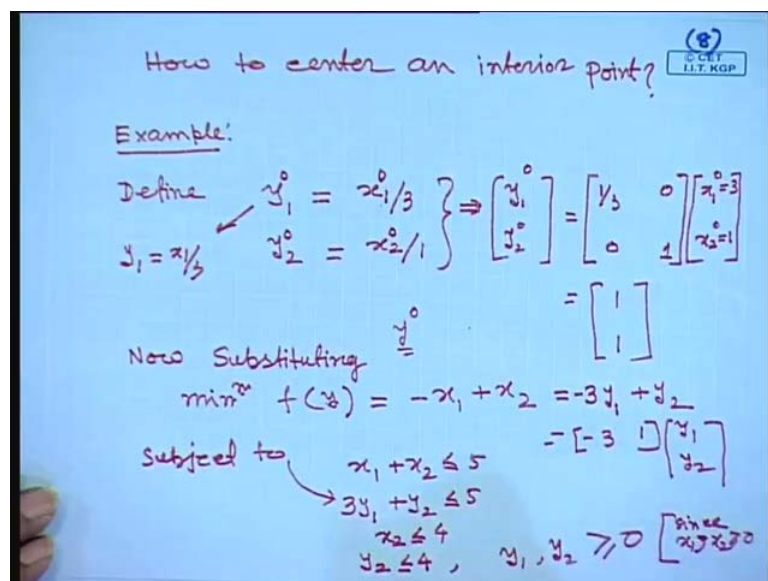 (8)
© CET
I.I.T. KGP
How to center an interior point?
Example:
Define y₁⁰ = x₁⁰/3 } ⇒ [y₁⁰ y₂⁰] = [1/3 0 0 1] [x₁⁰=3 x₂⁰=1]
y₁ = x₁/3 y₂⁰ = x₂⁰/1
= [1 1]
y⁰
Now Substituting
minᵐ f(y) = -x₁ + x₂ = -3y₁ + y₂
= [-3 1] [y₁ y₂]
Subject to, x₁ + x₂ ≤ 5
3y₁ + y₂ ≤ 5
x₂ ≤ 4
y₂ ≤ 4, y₁, y₂ ≥ 0 [since x₁, x₂ ≥ 0